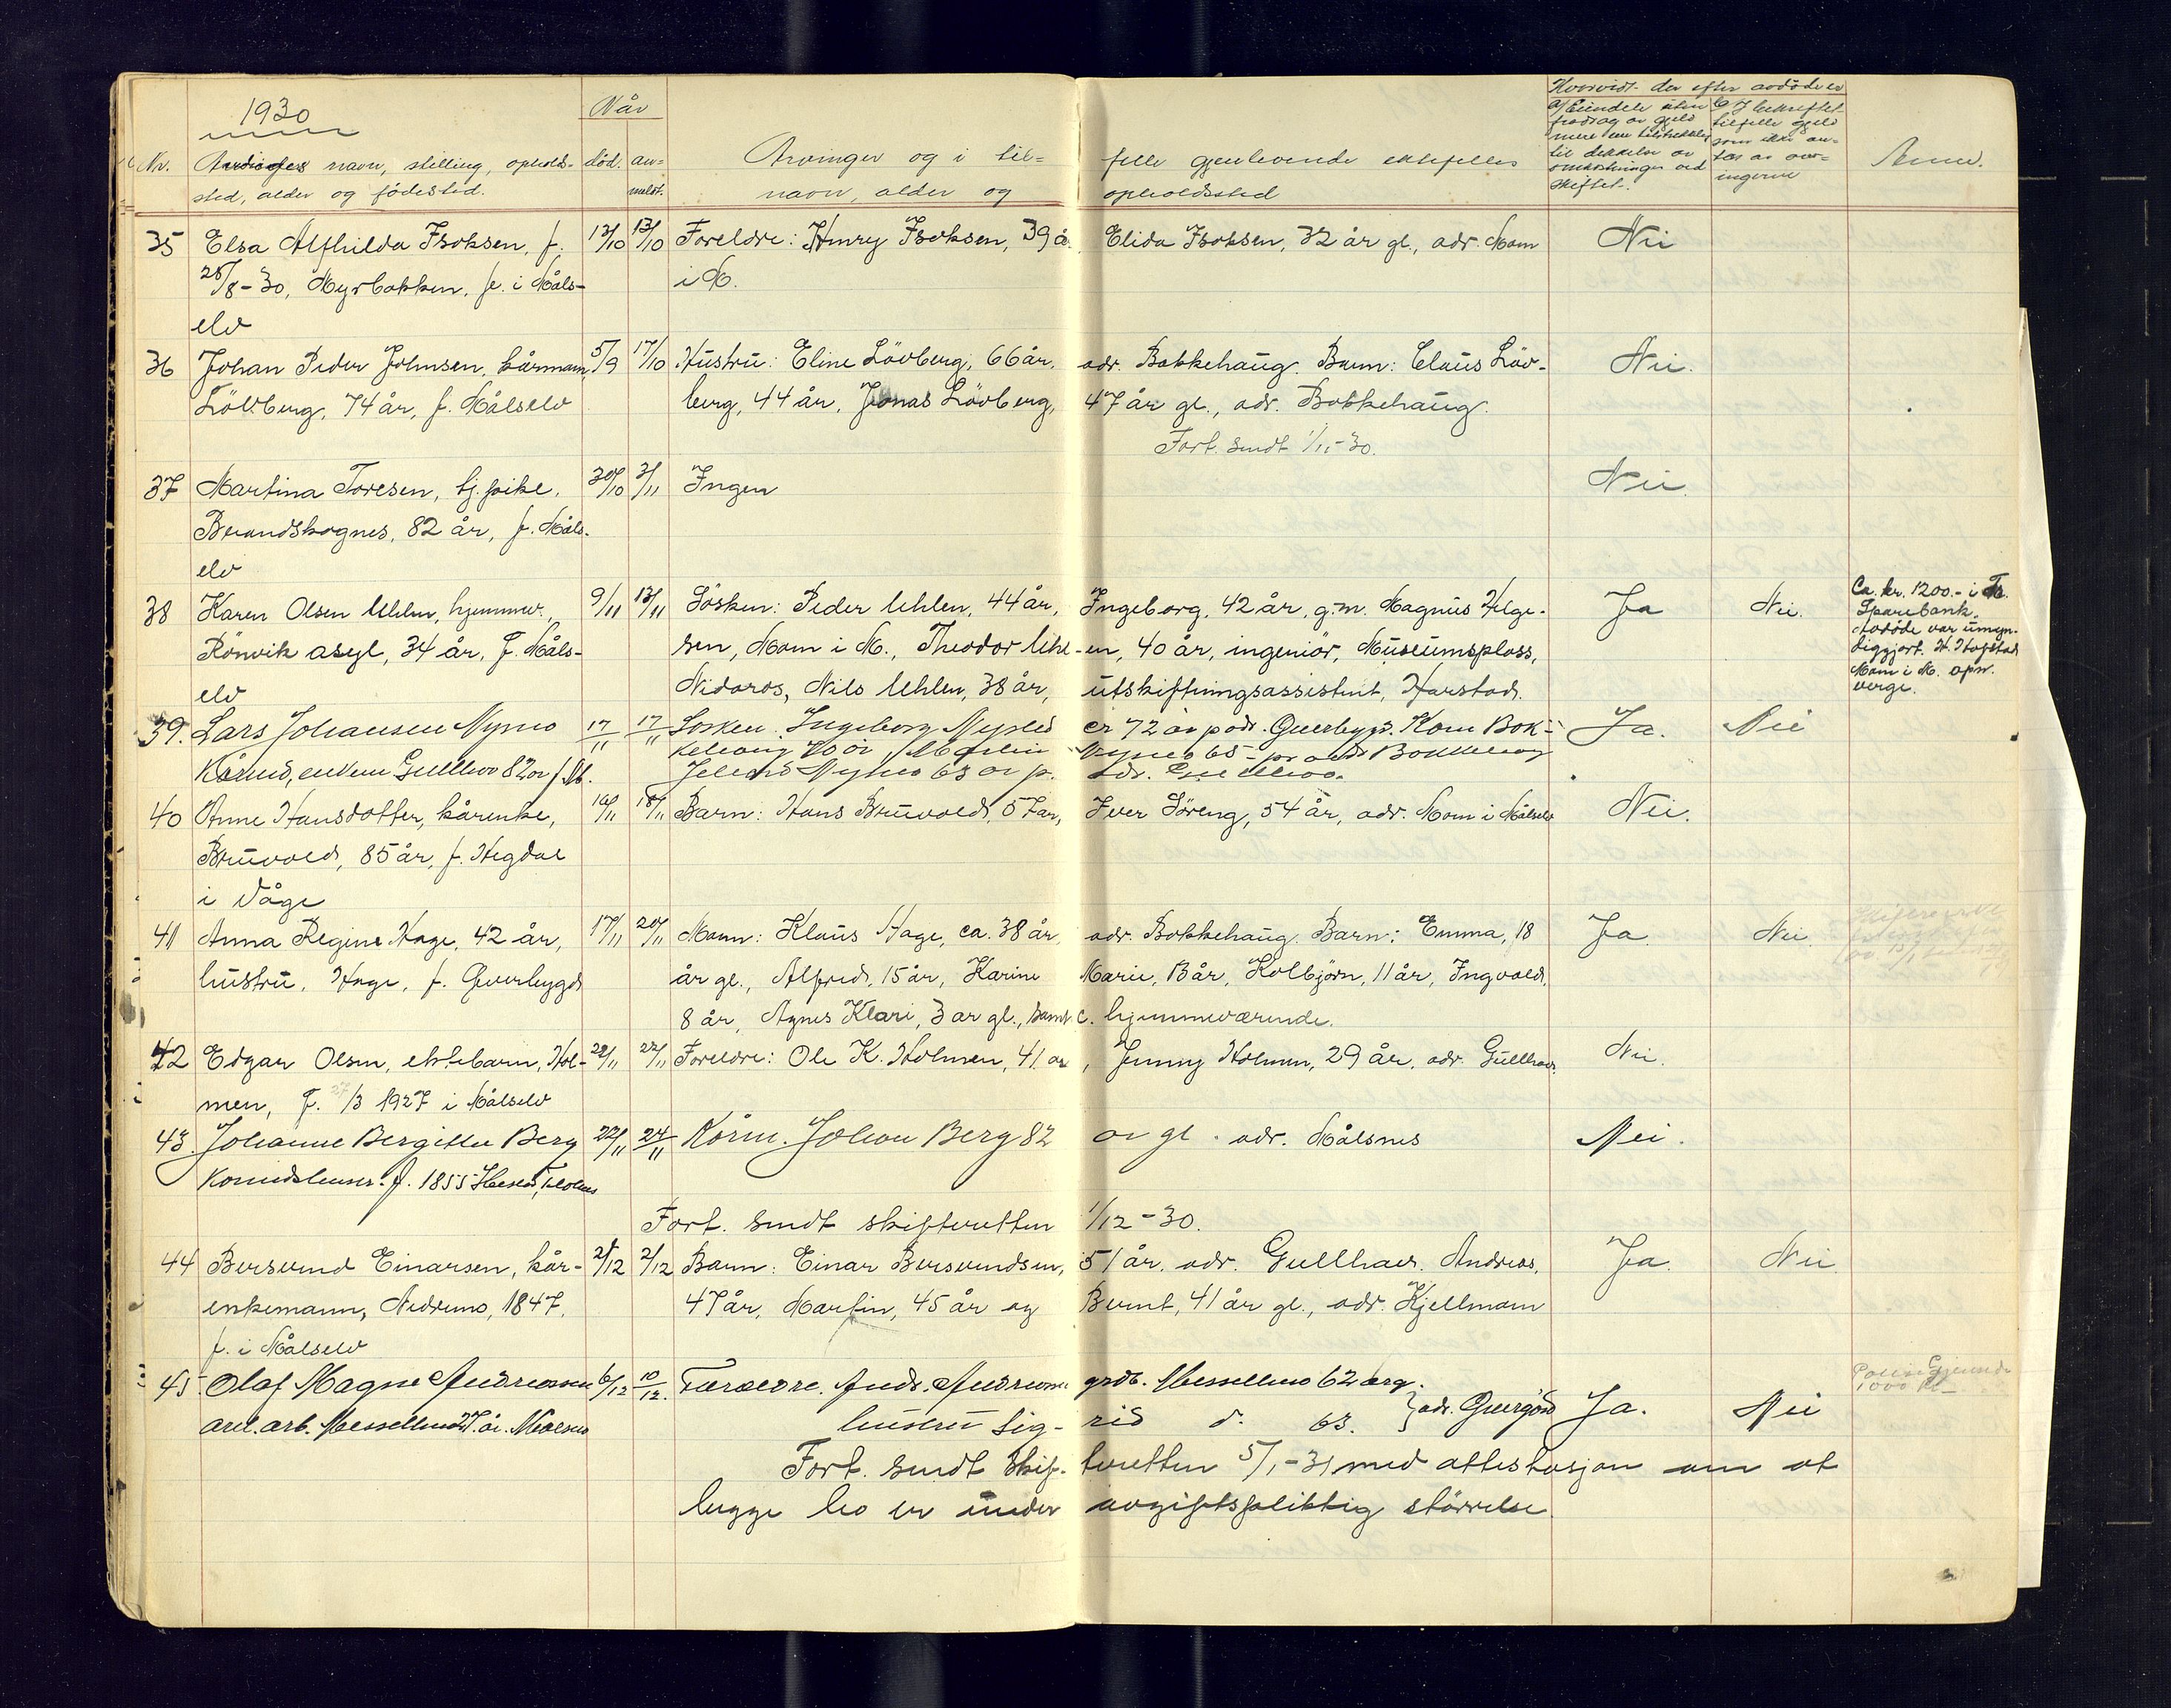 1930
Når
Hvorvidt der efter avdøde er
Nr.
Avdødes navn, stilling, opholds-
sted, alder og fødested.
død.
an-
meldt.
Arvinger og i til-
navn, alder og
felle gjenlevende ektefelles
opholdssted
a) Eiendele uten
fradrag av gjeld
mere enn tilstrekkelig
til dekkelse av
omkostninger ved
skiftet.
b) I bekreftet
tilfelle gjeld
som ikke an-
tas av arv-
ingerne
Anm.
35 Elsa Alfhilda Isaksen, f. 13/10 13/10 Foreldre: Henry Isaksen, 39 å. Elida Isaksen, 32 år gl., adr. Moen Nei
28/8-30, Myrbakken, f. i Måls- i M.
elv
36 Johan Peder Johnsen, kårmann, 5/9 17/10 Hustru: Eline Lövberg, 66 år, adr. Bakkehaug. Barn: Claus Löv- Nei.
Lövberg, 74 år, f. Målselv berg, 44 år, Jonas Lövberg, 47 år gl., adr. Bakkehaug.
Fort. sendt 1/11-30.
37 Martina Toresen, tj.pike, 30/10 3/11 Ingen Nei.
Brandskognes, 82 år, f. Måls-
elv
38 Karen Olsen Uhlen, hjemmev., 9/11 13/11 Sösken: Peder Uhlen, 44 år, Ingeborg, 42 år, g.m. Magnus Helge- Ja Nei. Ca. kr. 1200.- i
Rönvik asyl, 34 år, f. Måls- sen, Moen i M., Theodor Uhl-en, 40 år, ingeniör, Museumsplass, Sparebank.
elv Nidaros, Nils Uhlen, 38 år, utskiftningsassistent, Harstad. Avdøde var umyn-
diggjort. H. Hofstad
Moen i M. opn.
verge.
39. Lars Johansen Nymo 17/11 17/11 Sosken Ingeborg er 72 år Ja. Nei
Gullhav 82 år f. M. Nymo 65 Bakkehaug
Nymo 63 år adr. Gullhav.
40 Anne Hansdatter, kårenke, 16/11 18/11 Barn: Hans Bruvold, 57 år, Iver Söreng, 54 år, adr. Moen i Målselv Nei.
Bruvold, 85 år, f. Hegdal
i Våge
41 Anna Regine Hage, 42 år, 17/11 20/11 Mann: Klaus Hage, ca. 38 år, adr. Bakkehaug. Barn: Emma, 18 Ja. Nei.
hustru, Hage, f. Överbygd år gl., Alfred, 15 år, Karine Marie, 13 år, Kolbjörn, 11 år, Ingvald,
8 år, Agnes Klari, 3 år gl., samtl. hjemmeværende.
42 Edgar Olsen, ektebarn, Hol- 22/11 22/11 Foreldre: Ole K. Holmen, 41 år, Jenny Holmen, 29 år, adr. Gullhav. Nei.
men, f. 27/3 1927 i Målselv
43. Johanne Bergitte Berg 22/11 24/11 Kårm. Johan Berg 82 år gl. adr. Målsnes Nei.
f. 1855
Fort. sendt skifteretten 1/12-30.
44 Bersvend Einarsen, kår- 2/12 2/12 Barn: Einar Bersvendsen, 51 år, adr. Gullhav. Andreas, Ja. Nei
enkemann, Nedremo, 1847, 47 år, Martin, 45 år og Bernt, 41 år gl., adr. Kjellmoen
f. i Målselv
45. Olaf Magne Andreassen 6/12 10/12. Foreldre. Andr. Andreassen grdb. Messelmo 62 årg.
arb. Messelmo 27 år. Målselv hustru Sig-rid d. 63. } adr. Ja. Nei
Fort. sendt skif-teretten 5/1-31 med attestasjon om at
begge bo er under avgiftspliktig störrelse.